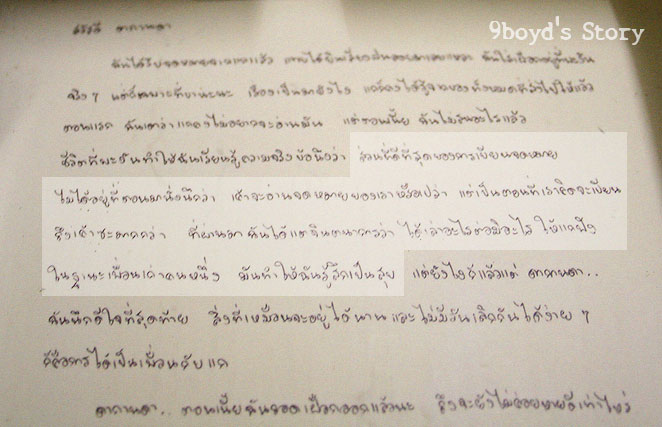 9boyd's Story
สวัสดี ดากานดา
ฉันได้รับจดหมายจากแกแล้ว
จริง ๆ แต่ก็เพราะที่เกาะนะนะ เรื่องเป็นมายังไง แกก็คงได้รู้จากของทั้งหมดที่ส่งไปให้แล้ว
ตอนแรก ฉันเดาว่าแกคงไม่อยากจะอ่านมัน แต่ตอนนี้ ฉันไม่สนอะไรแล้ว
ชีวิตที่พะงันทำให้ฉันเรียนรู้ความจริงข้อนึงว่า ส่วนที่ดีที่สุดของการเขียนจดหมาย
ไม่ได้อยู่ที่ตอนมานั่งนึกว่า เค้าจะอ่านจดหมายของเราหรือเปล่า แต่เป็นตอนที่เราคิดจะเขียน
ถึงเค้าซะมากกว่า ที่ผ่านมา ฉันได้แต่จินตนาการว่า ได้เล่าอะไรต่อมิอะไร ให้แกฟัง
ในฐานะเพื่อนเก่าคนหนึ่ง มันทำให้ฉันรู้สึกเป็นสุข แต่ยังไงก็แล้วแต่ ดากานดา..
ฉันนึกดีใจที่สุดท้าย สิ่งที่เหมือนจะอยู่ได้นานและไม่มีวันเลิกกันได้ง่าย ๆ
ก็คือการได้เป็นเพื่อนกับแก
ดากานดา.. ตอนเนี้ยฉันถอดเฝือกออกแล้วนะ ถึงจะยังไม่ค่อยหายดีเท่าไหร่